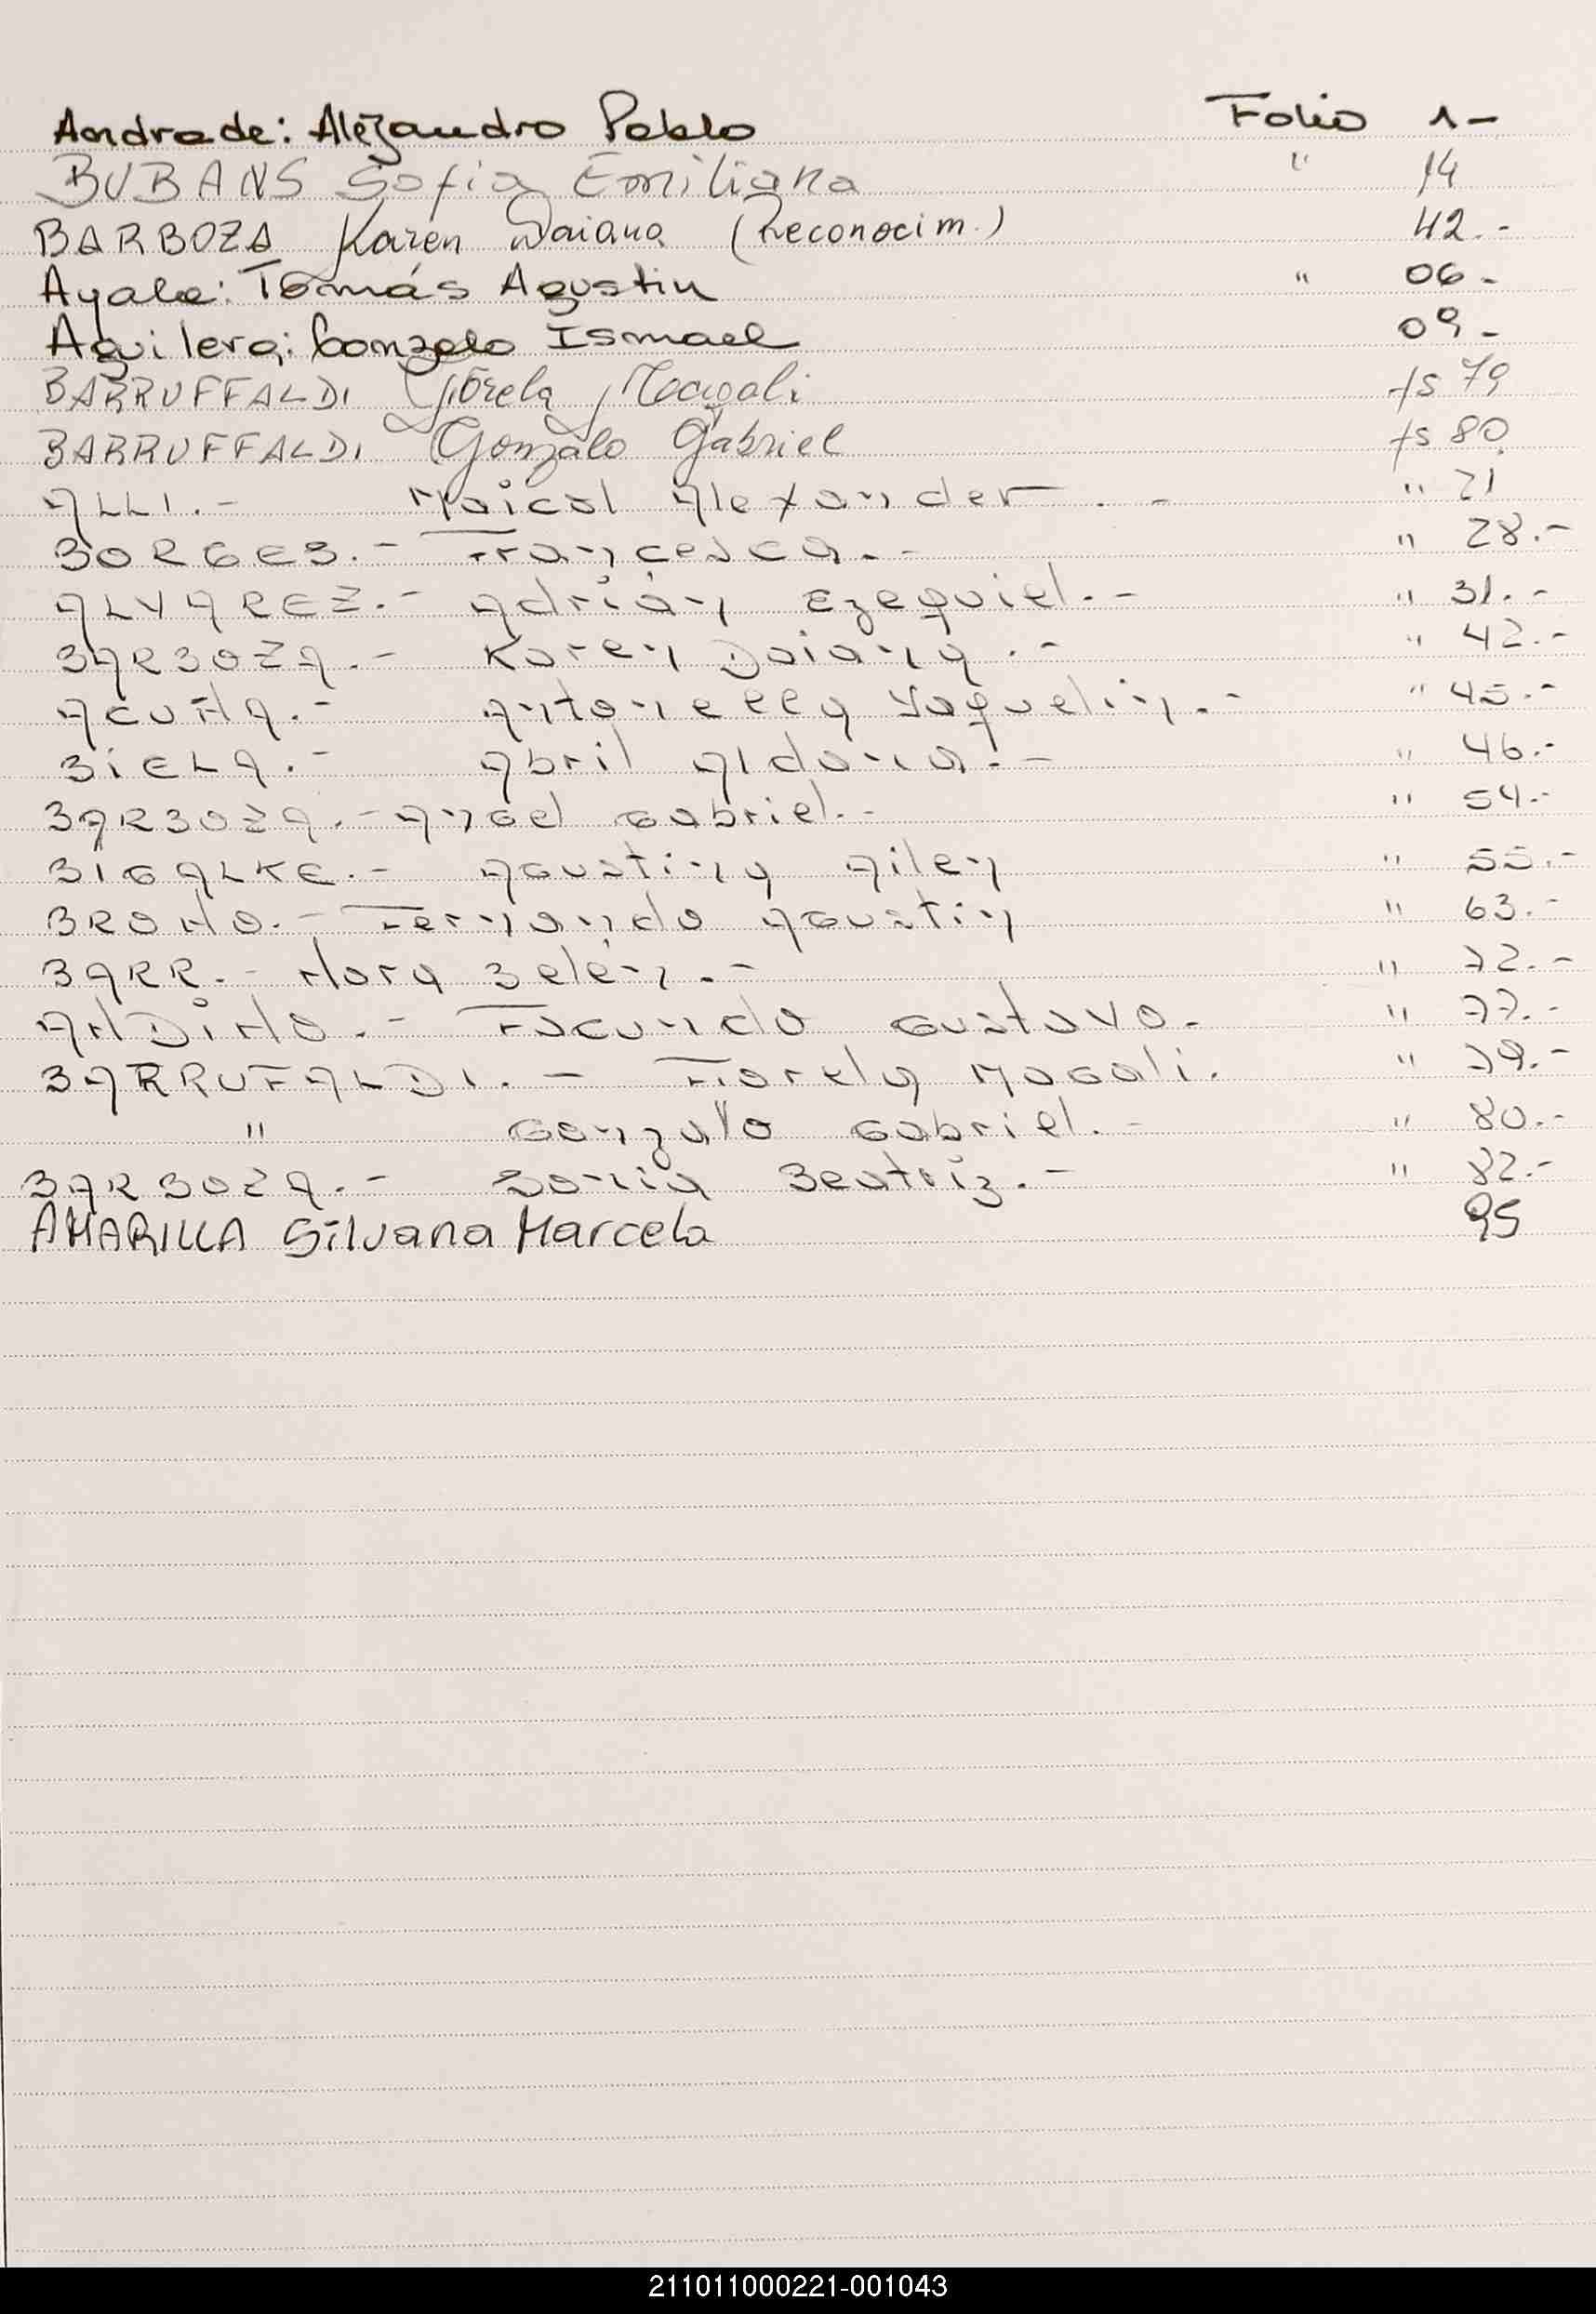 Andrade: Alejandro Pablo Folio 1-
BUBANS Sofia Emiliana " 14
BARBOZA Karen Daiana (Reconocim.) 42.-
Ayala: Tomás Agustin " 06-
Aguilera: Gonzalo Ismael 09-
BARRUFFALDI Fiorela Magali fs 79
BARRUFFALDI Gonzalo Gabriel fs 80
ALLI.- Maicol Alexander.- " 21
BORGES.- Francesca.- " 28.-
ALVAREZ.- Adrián Ezequiel.- " 31.-
BARBOZA.- Karen Daiana.- " 42.-
ACUÑA.- Antonella Yaquelin.- " 45.-
BIELA.- Abril Aldana.- " 46.-
BARBOZA.- Angel Gabriel.- " 54.-
BIGALKE.- Agustina Ailen " 55.-
BRONO.- Fernando Agustin " 63.-
BARR.- Nora Belén.- " 72.-
ANDINO.- Facundo Gustavo. " 77.-
BARRUFALDI.- Fiorela Magali. " 79.-
" Gonzalo Gabriel.- " 80.-
BARBOZA.- Sonia Beatriz.- " 82.-
AMARILLA Silvana Marcela 95
211011000221-001043